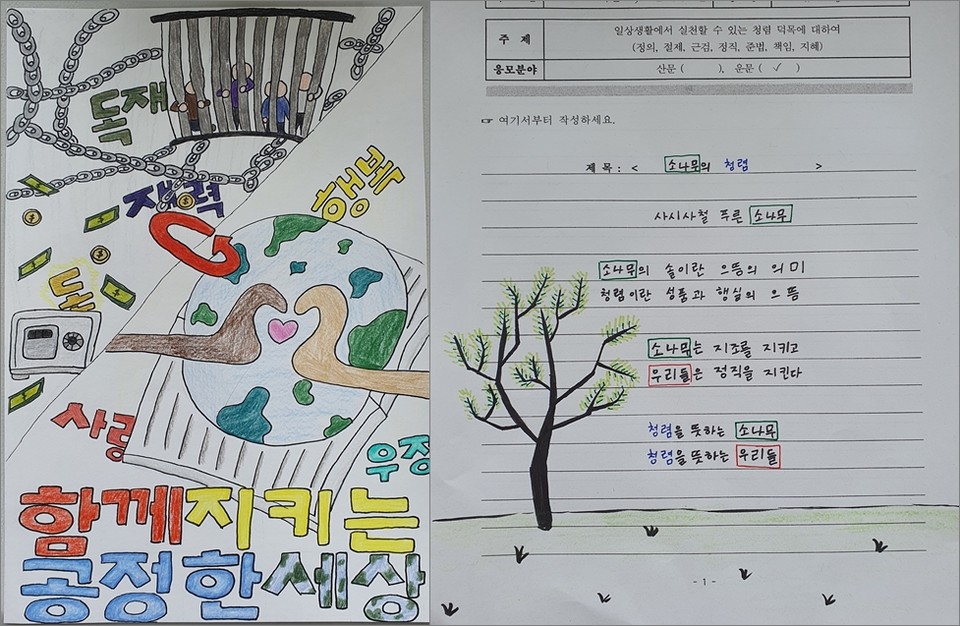 독재
재력
행복
돈
사랑
우정
함께 지키는
공정한 세상
주 제
일상생활에서 실천할 수 있는 청렴 덕목에 대하여
(정의, 절제, 근검, 정직, 준법, 책임, 지혜)
응모분야
산문 ( ), 운문 ( ✓ )
☞ 여기서부터 작성하세요.
제 목 : < 소나무의 청렴 >
사시사철 푸른 소나무
소나무의 솔이란 으뜸의 의미
청렴이란 성품과 행실의 으뜸
소나무는 지조를 지키고
우리들은 정직을 지킨다
청렴을 뜻하는 소나무
청렴을 뜻하는 우리들
- 1 -